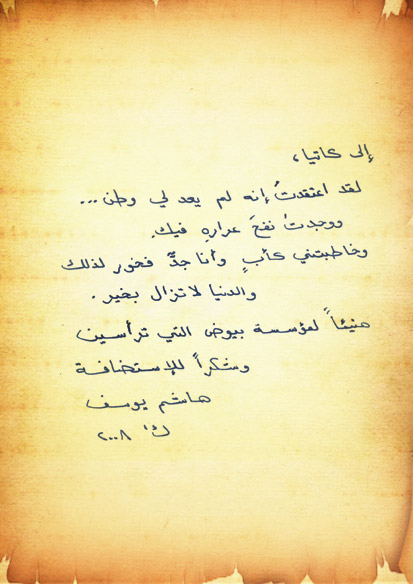 إلى كاتيا،
لقد اعتقدتُ إنه لم يعد لي وطن...
ووجدتُ نفحَ عرارهِ فيكِ.
وخاطبتني كأبٍ وأنا جدٌّ فخور لذلك
والدنيا لا تزال بخير.
هنيئاً لمؤسسة بيوض التي ترأسين
وشكراً للإستضافة
هاشم يوسف
ك' ٢٠٠٨